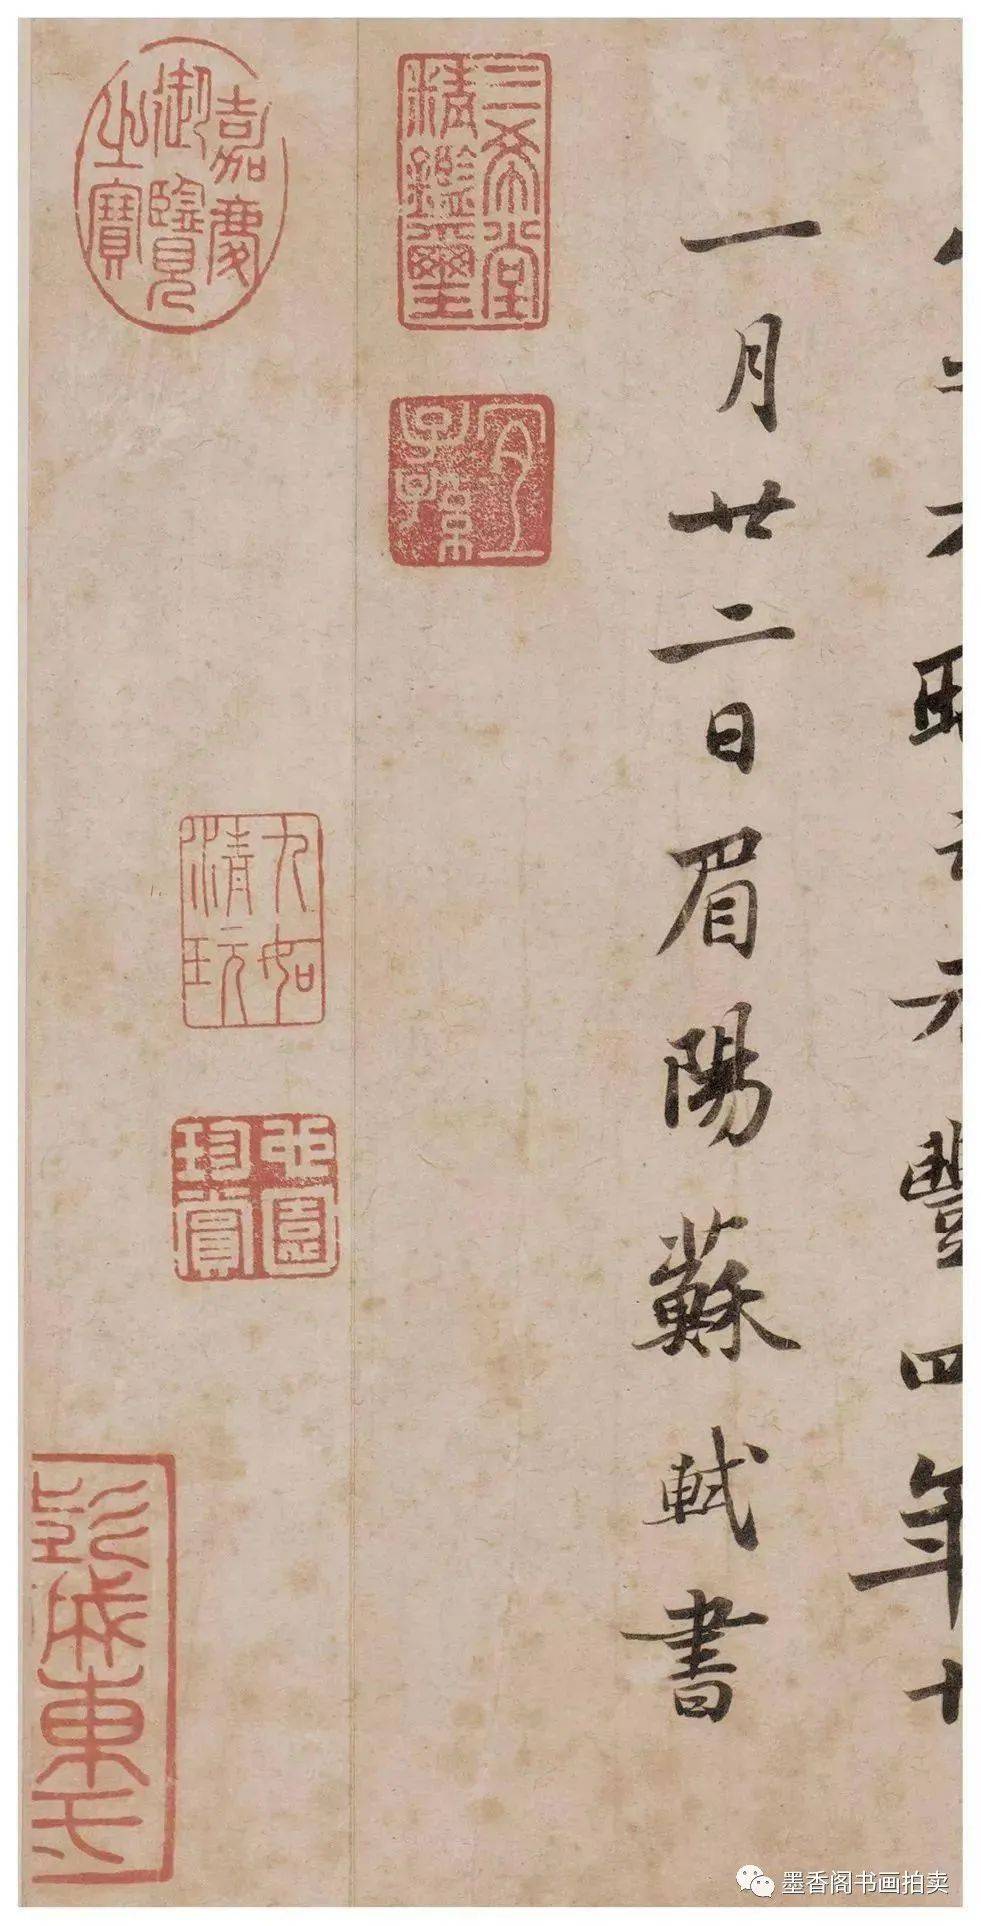 元豐四年十
一月廿二日眉陽蘇軾書
三希堂
精鑑璽
宜
子孫
嘉慶
御覽
之寶
九如
清玩
珍賞
墨香阁书画拍卖